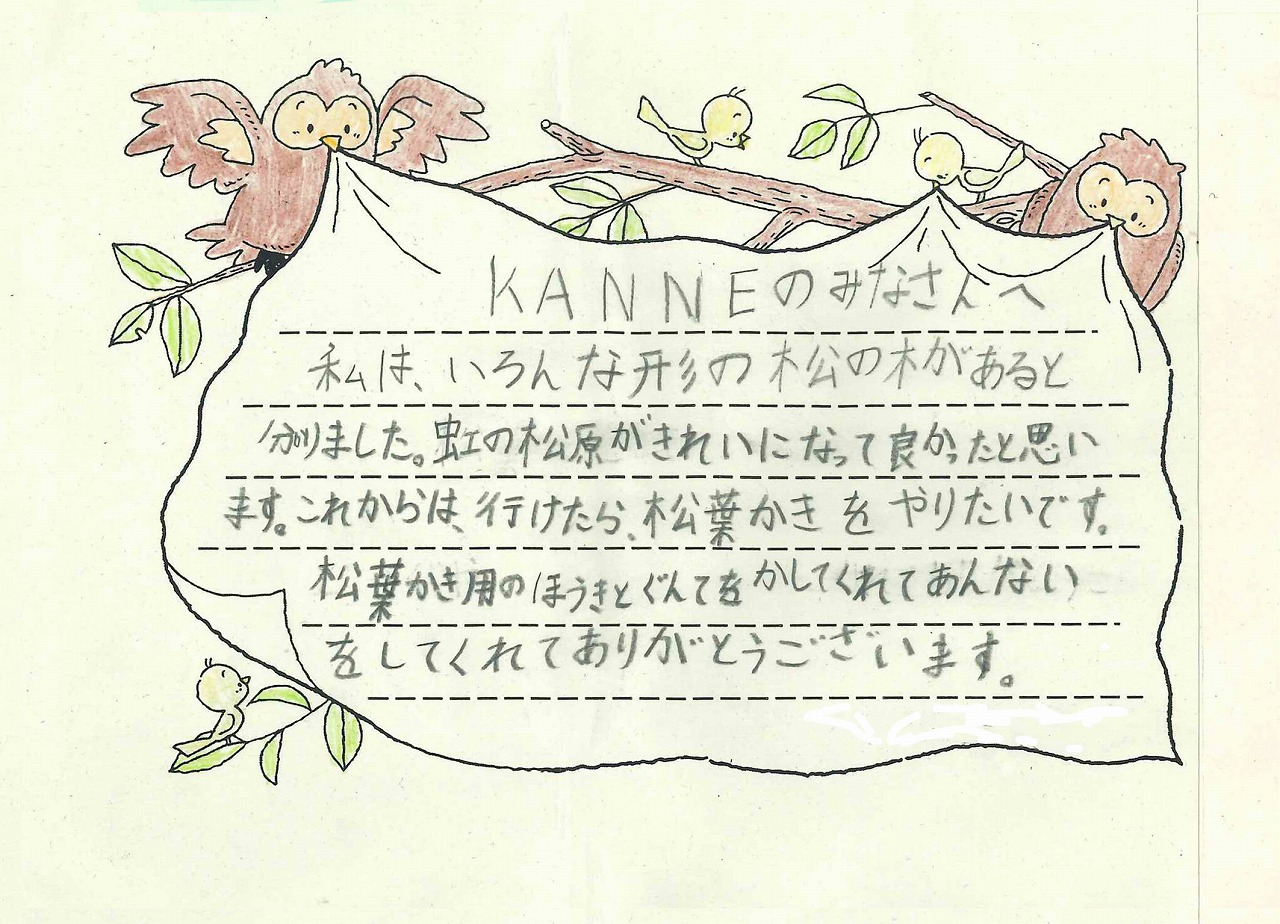 KANNEのみなさんへ
私は、いろんな形の松の木があると
分かりました。虹の松原がきれいになって良かったと思い
ます。これからは、行けたら、松葉かきをやりたいです。
松葉かき用のほうきとぐんてをかしてくれてあんない
をしてくれてありがとうございます。